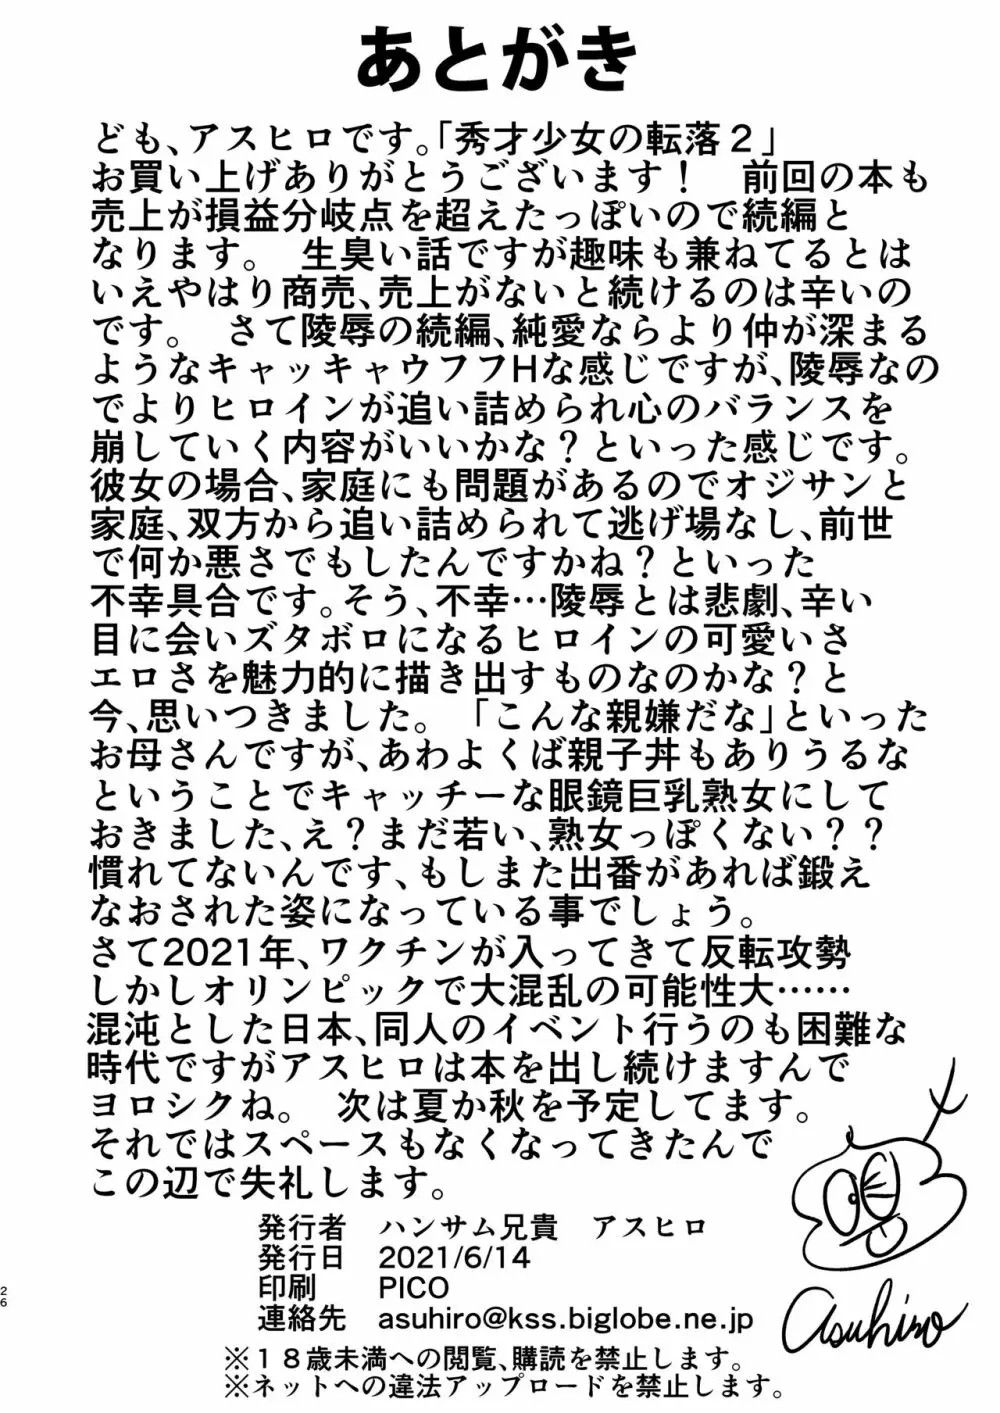 あとがき
ども、アスヒロです。「秀才少女の転落２」
お買い上げありがとうございます！　前回の本も
売上が損益分岐点を超えたっぽいので続編と
なります。　生臭い話ですが趣味も兼ねてるとは
いえやはり商売、売上がないと続けるのは辛いの
です。　さて陵辱の続編、純愛ならより仲が深まる
ようなキャッキャウフフHな感じですが、陵辱なの
でよりヒロインが追い詰められ心のバランスを
崩していく内容がいいかな？といった感じです。
彼女の場合、家庭にも問題があるのでオジサンと
家庭、双方から追い詰められて逃げ場なし、前世
で何か悪さでもしたんですかね？といった
不幸具合です。そう、不幸…陵辱とは悲劇、辛い
目に会いズタボロになるヒロインの可愛いさ
エロさを魅力的に描き出すものなのかな？と
今、思いつきました。　「こんな親嫌だな」といった
お母さんですが、あわよくば親子丼もありうるな
ということでキャッチーな眼鏡巨乳熟女にして
おきました、え？まだ若い、熟女っぽくない？？
慣れてないんです、もしまた出番があれば鍛え
なおされた姿になっている事でしょう。
さて2021年、ワクチンが入ってきて反転攻勢
しかしオリンピックで大混乱の可能性大……
混沌とした日本、同人のイベント行うのも困難な
時代ですがアスヒロは本を出し続けますんで
ヨロシクね。　次は夏か秋を予定してます。
それではスペースもなくなってきたんで
この辺で失礼します。
発行者　ハンサム兄貴　アスヒロ
発行日　2021/6/14
印刷　PICO
連絡先　asuhiro@kss.biglobe.ne.jp
asuhiro
※１８歳未満への閲覧、購読を禁止します。
※ネットへの違法アップロードを禁止します。
26